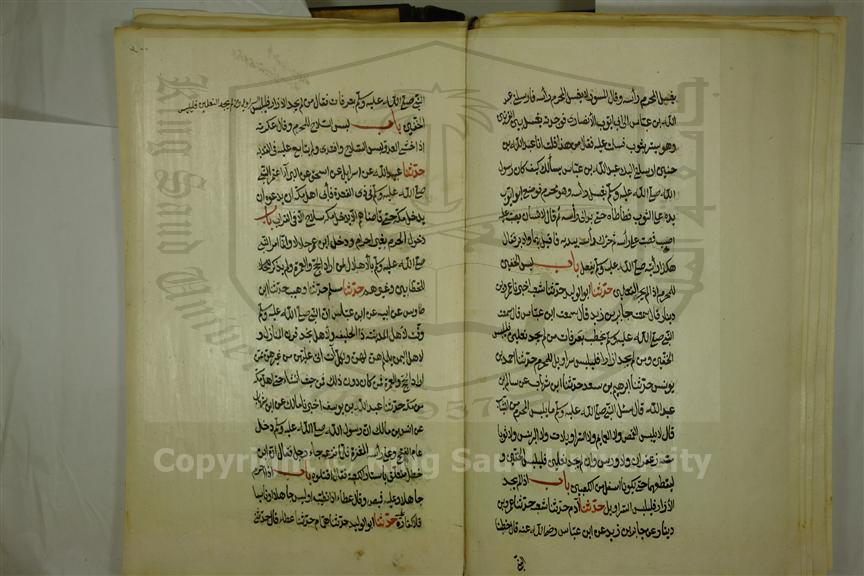 يغسل المحرم رأسه وقال المسور لا يغسل المحرم رأسه فارسلني عبد
الله بن عباس الى ابى ايوب الانصارى فوجدته يغتسل بين القرنين
وهو يستر بثوب فسلمت عليه فقال من هذا فقلت انا عبد الله بن
حنين ارسلني اليك عبد الله بن عباس يسألك كيف كان رسول
الله صلى الله عليه وسلم يغسل رأسه وهو محرم فوضع ابو ايوب
يده على الثوب فطأطأه حتى بدا لى رأسه ثم قال لانسان يصب عليه
اصبب فصب على رأسه ثم حرك رأسه بيديه فاقبل بهما وادبر فقال
هكذا رأيته صلى الله عليه وسلم يفعل باب لبس الخفين
للمحرم اذا لم يجد النعلين حدثنا ابو الوليد حدثنا شعبة اخبرنى عمرو بن
دينار قال سمعت جابر بن زيد قال سمعت ابن عباس قال سمعت
النبي صلى الله عليه وسلم يخطب بعرفات من لم يجد نعلين فليلبس
الخفين ومن لم يجد ازارا فليلبس سراويل للمحرم حدثنا احمد بن
يونس حدثنا ابرهيم بن سعد حدثنا ابن شهاب عن سالم بن
عبد الله قال سئل النبي صلى الله عليه وسلم ما يلبس المحرم من الثياب
قال لا يلبس القميص ولا العمايم ولا السراويلات ولا البرنس ولا ثوبا
مسه زعفران ولا ورس وان لم يجد نعلين فليلبس الخفين و
ليقطعهما حتى يكونا اسفل من الكعبين باب اذا لم يجد
الازار فليلبس السراويل حدثنا آدم حدثنا شعبة حدثنا عمرو بن
دينار عن جابر بن زيد عن ابن عباس رضى الله عنه قال خطبنا
النبي صلى الله عليه وسلم بعرفات فقال من لم يجد الازار فليلبس السراويل ومن لم يجد النعلين فليلبس
الخفين باب لبس السلاح للمحرم وقال عكرمة
اذا خشى العدو لبس السلاح وافتدى ولم يتابع عليه فى الفدية
حدثنا عبيد الله عن اسرائيل عن ابى اسحق عن البراء اعتمر النبي
صلى الله عليه وسلم فى ذى القعدة فابى اهل مكة ان يدعوه ان
يدخل مكة حتى قاضاهم لا يدخل مكة سلاح الا فى القراب باب
دخول الحرم بغير احرام ودخل ابن عمر حلالا وانما امر النبي
صلى الله عليه وسلم بالاهلال من اراد الحج والعمرة ولم يذكر
للحطابين وغيرهم حدثنا مسلم حدثنا وهيب حدثنا ابن
طاوس عن ابيه عن ابن عباس ان النبي صلى الله عليه وسلم
وقت لاهل المدينة ذا الحليفة ولاهل نجد قرن المنازل و
لاهل اليمن يلملم هن لهن ولكل آت اتى عليهن من غيرهن ممن
اراد الحج والعمرة فمن كان دون ذلك فمن حيث انشأ حتى اهل مكة
من مكة حدثنا عبد الله بن يوسف اخبرنا مالك عن ابن شهاب
عن انس بن مالك ان رسول الله صلى الله عليه وسلم دخل
عام الفتح وعلى رأسه المغفر فلما نزعه جاء رجل فقال ان ابن
خطل متعلق باستار الكعبة فقال اقتلوه باب اذا احرم
جاهلا وعليه قميص وقال عطاء اذا تطيب او لبس جاهلا او ناسيا
فلا كفارة حدثنا ابو الوليد حدثنا همام حدثنا عطاء قال حدثنى
Copyright © King Saud University
King Saud University
1957